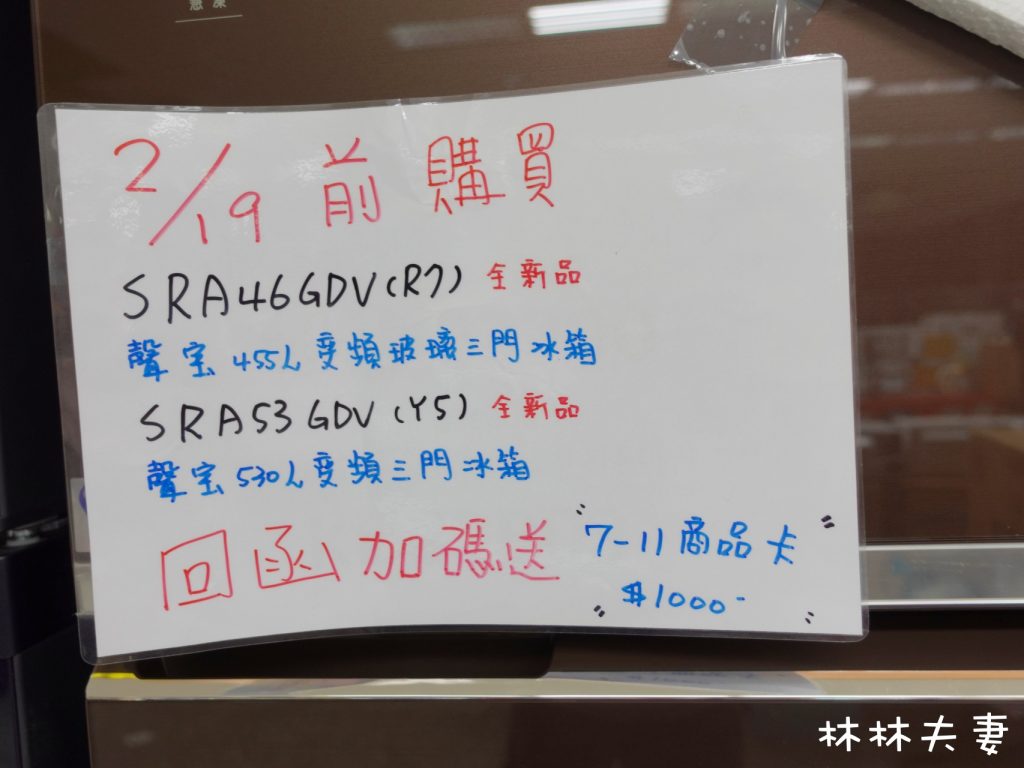 急凍
2/19 前 購買
SRA46GDV(R7) 全新品
聲宝 455L 变頻玻璃三門冰箱
SRA53GDV (Y5) 全新品
聲宝 530L 变頻三門冰箱
回函加碼送 "7-11 商品卡"
"$1000-"
林林夫妻